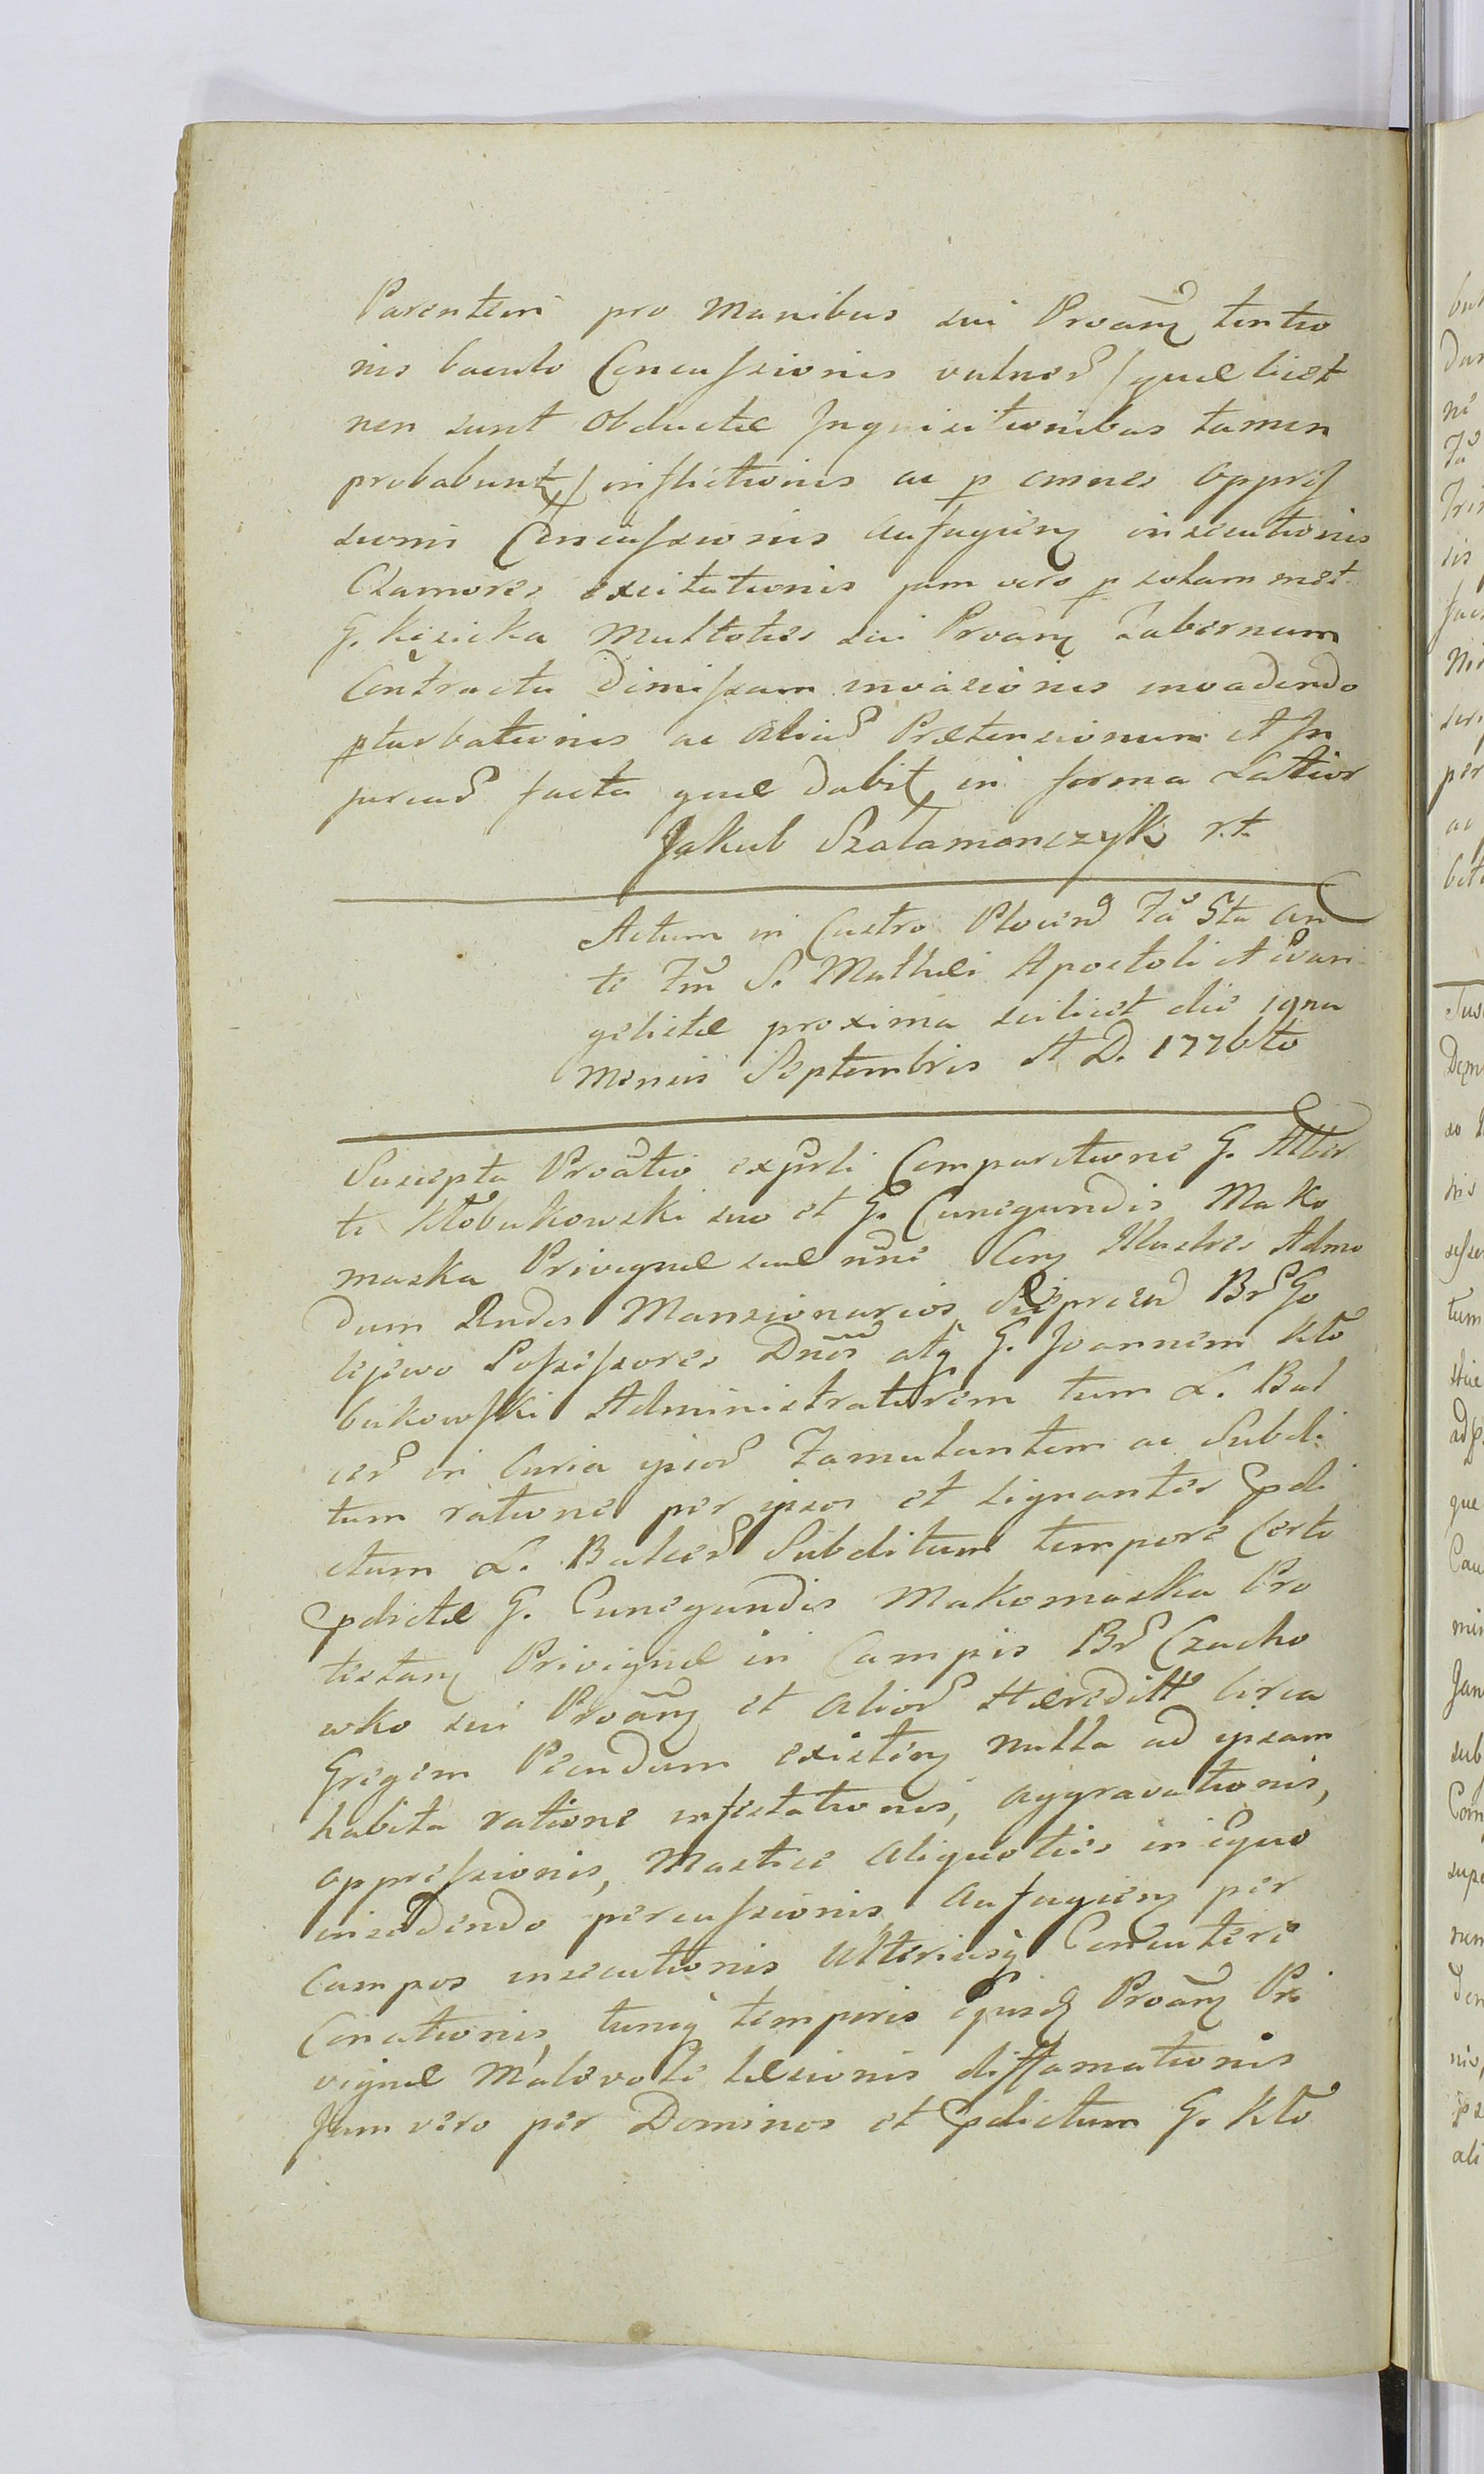 Parentem pro Manibus sui Proãnꝫ tentio
nis baculo Concussionis vulner̃ / quæ licet
non sunt Obductæ Inquisitionibus tamen
probabunt̃ / inflictionis ac p omnes oppres
sionis Concussionis aufugienꝫ insecutionis
Clamores excitationis jam vero p solam met
G. Kisicka Multoties sui Proãnꝫ Tabernam
Contractu Dimissam invasionis invadendo
pturbationis ac aliar̃ Prætensionum et In
juriar̃ facta quæ dabit in forma Latior
Jakub Szalamonczyk r.t.
Actum in Castro Plocen̄ Fã 5ta an
te Fm̃ S. Mathæi Apostoli et Evan
gelistæ proxima scilicet die 19na
Mensis Septembris A D. 1776to
Suscepta Proãtio exp̃sti Comparitione G. Alber
ti Kłobukowski suo et G. Cunegundis Mako
maska Privignæ suæ nñe Clenꝫ Illustres Admo
dum Rndos Mansionarios Br̃ Go
lejewo Possessores Dños atq̃ G. Joannem Kło
bukowski Administratorem tum L. Bal
cer̃ in Curia ipsor̃ Famulantem ac Subdi
tum ratione per ipsos et signanter pdi
ctum L. Balcer̃ Subditum tempore Certo
pdictæ G. Cunegundis Makomaska Pro
testanꝫ Privignæ in Campis Br̃ Czacho
wko sui Proãnꝫ et alior̃ Hæreditt circa
Gregem Pecudum existenꝫ nulla ad ipsam
habita ratione infestationis, aggravationis,
oppressionis, Mastice aliquoties in Equo
insedendo percussionis, aufugienꝫ per
Campos insecutionis Ulteriusq̃ Concutere
Conationis, tunq̃ temporis Ejusdꝫ Proãnꝫ Pri
vignæ Malevole læsionis diffamationis
Jam vero per Dominos et pdictum G. Kło